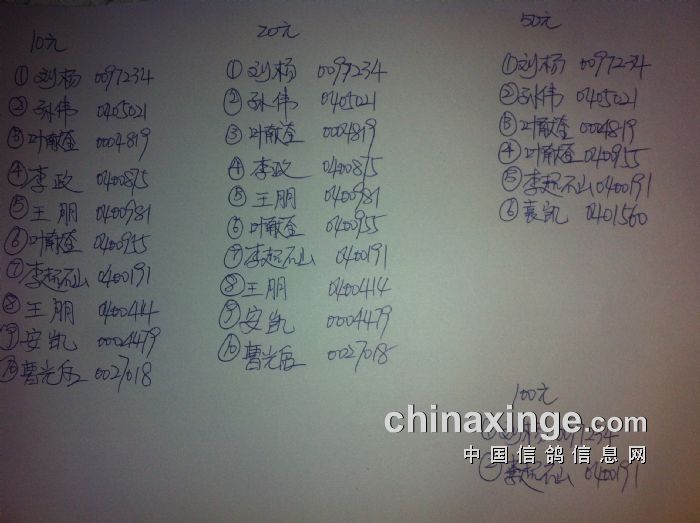 10元
①刘杨 0097234
②孙伟 0405021
③叶献奎 0004819
④李政 0400875
⑤王朋 0400981
⑥叶献奎 0400955
⑦李起石山 0400191
⑧王朋 0400414
⑨安凯 0004479
⑩曹光 0027018
20元
①刘杨 0097234
②孙伟 0405021
③叶献奎 0004819
④李政 0400875
⑤王朋 0400981
⑥叶献奎 0400955
⑦李起石山 0400191
⑧王朋 0400414
⑨安凯 0004479
⑩曹光 0027018
50元
①刘杨 0097234
②孙伟 0405021
③叶献奎 0004819
④叶献奎 0400955
⑤李起石山 0400191
⑥袁凯 0401560
100元
①刘杨 0097234
②李起石山 0400191
chinaxinge.com
中国信鸽信息网